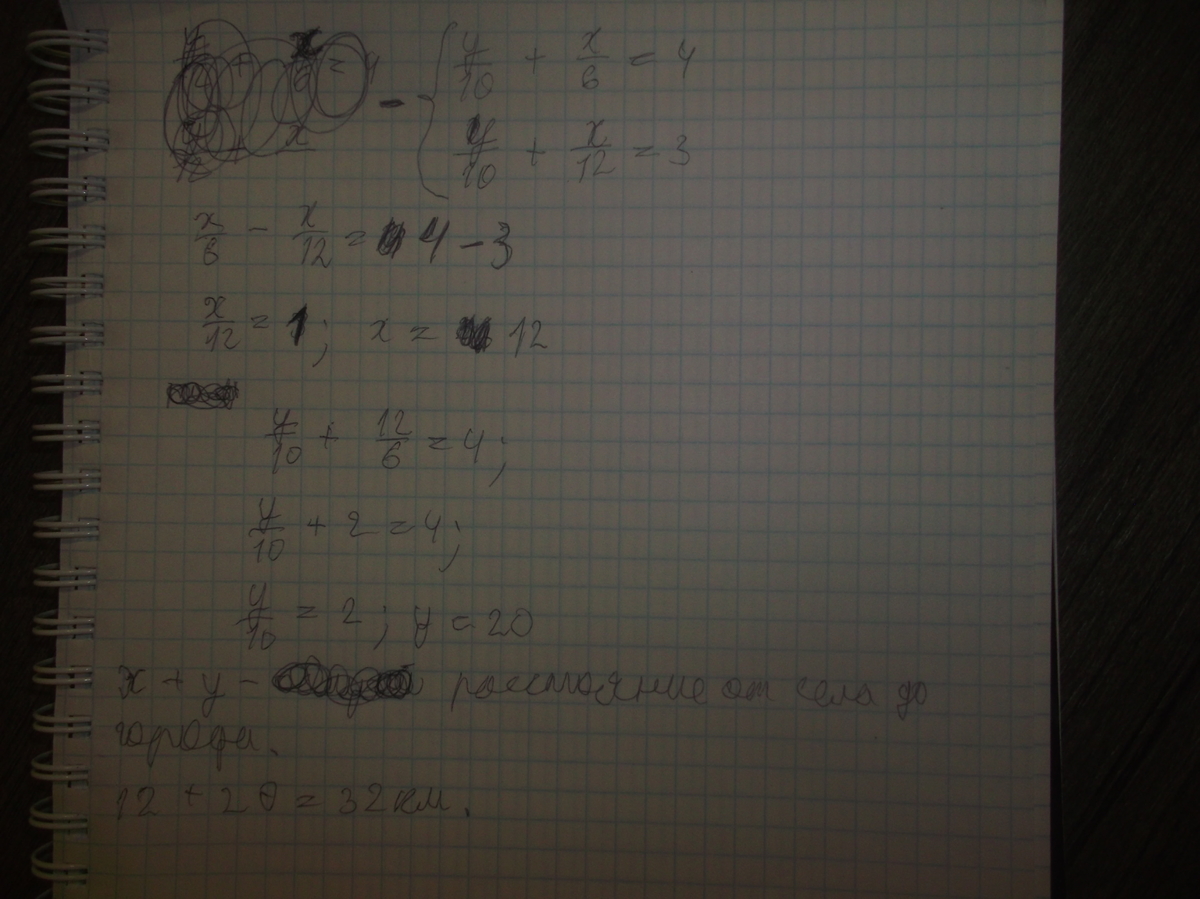 y/10 + x/6 = 4
- { y/10 + x/12 = 3
x/6 - x/12 = 4 - 3
x/12 = 1; x = 12
y/10 + 12/6 = 4;
y/10 + 2 = 4;
y/10 = 2; y = 20
x + y - расстояние от села до
города.
12 + 20 = 32 км.